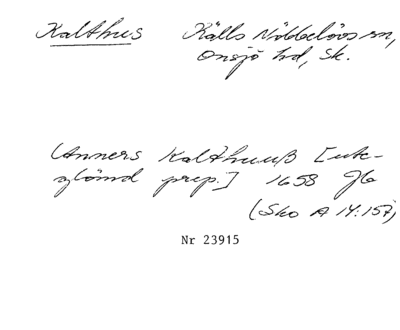 Kalthus Källs Nöbbelövs sn,
Onsjö hd, Sk.
Anners Kalthuuß [ute-
glömd prep.] 1658 Jb
(Sko A 14:157)
Nr 23915